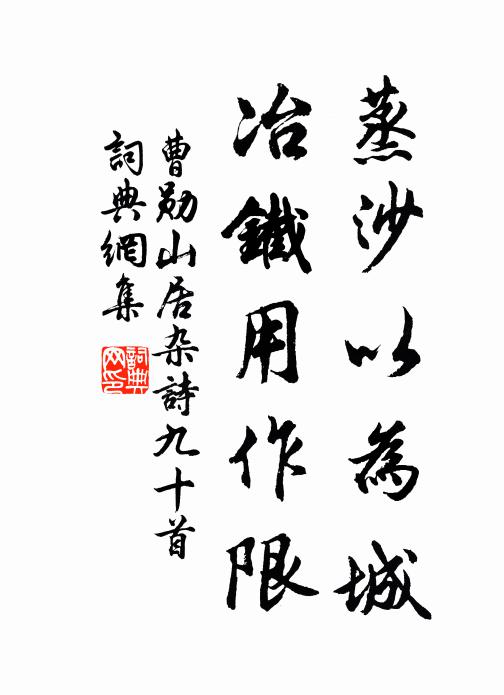 蒸沙以為城
冶鐵用作限
曹勛山居杂詩九十首
詞典網集
詞典網印